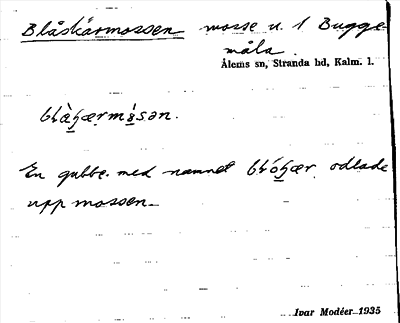 Blåskärmossen mosse u. 1 Bugge-
måla.
Ålems sn, Stranda hd, Kalm. l.
En gubbe med namnet odlade
upp mossen.
Ivar Modéer 1935